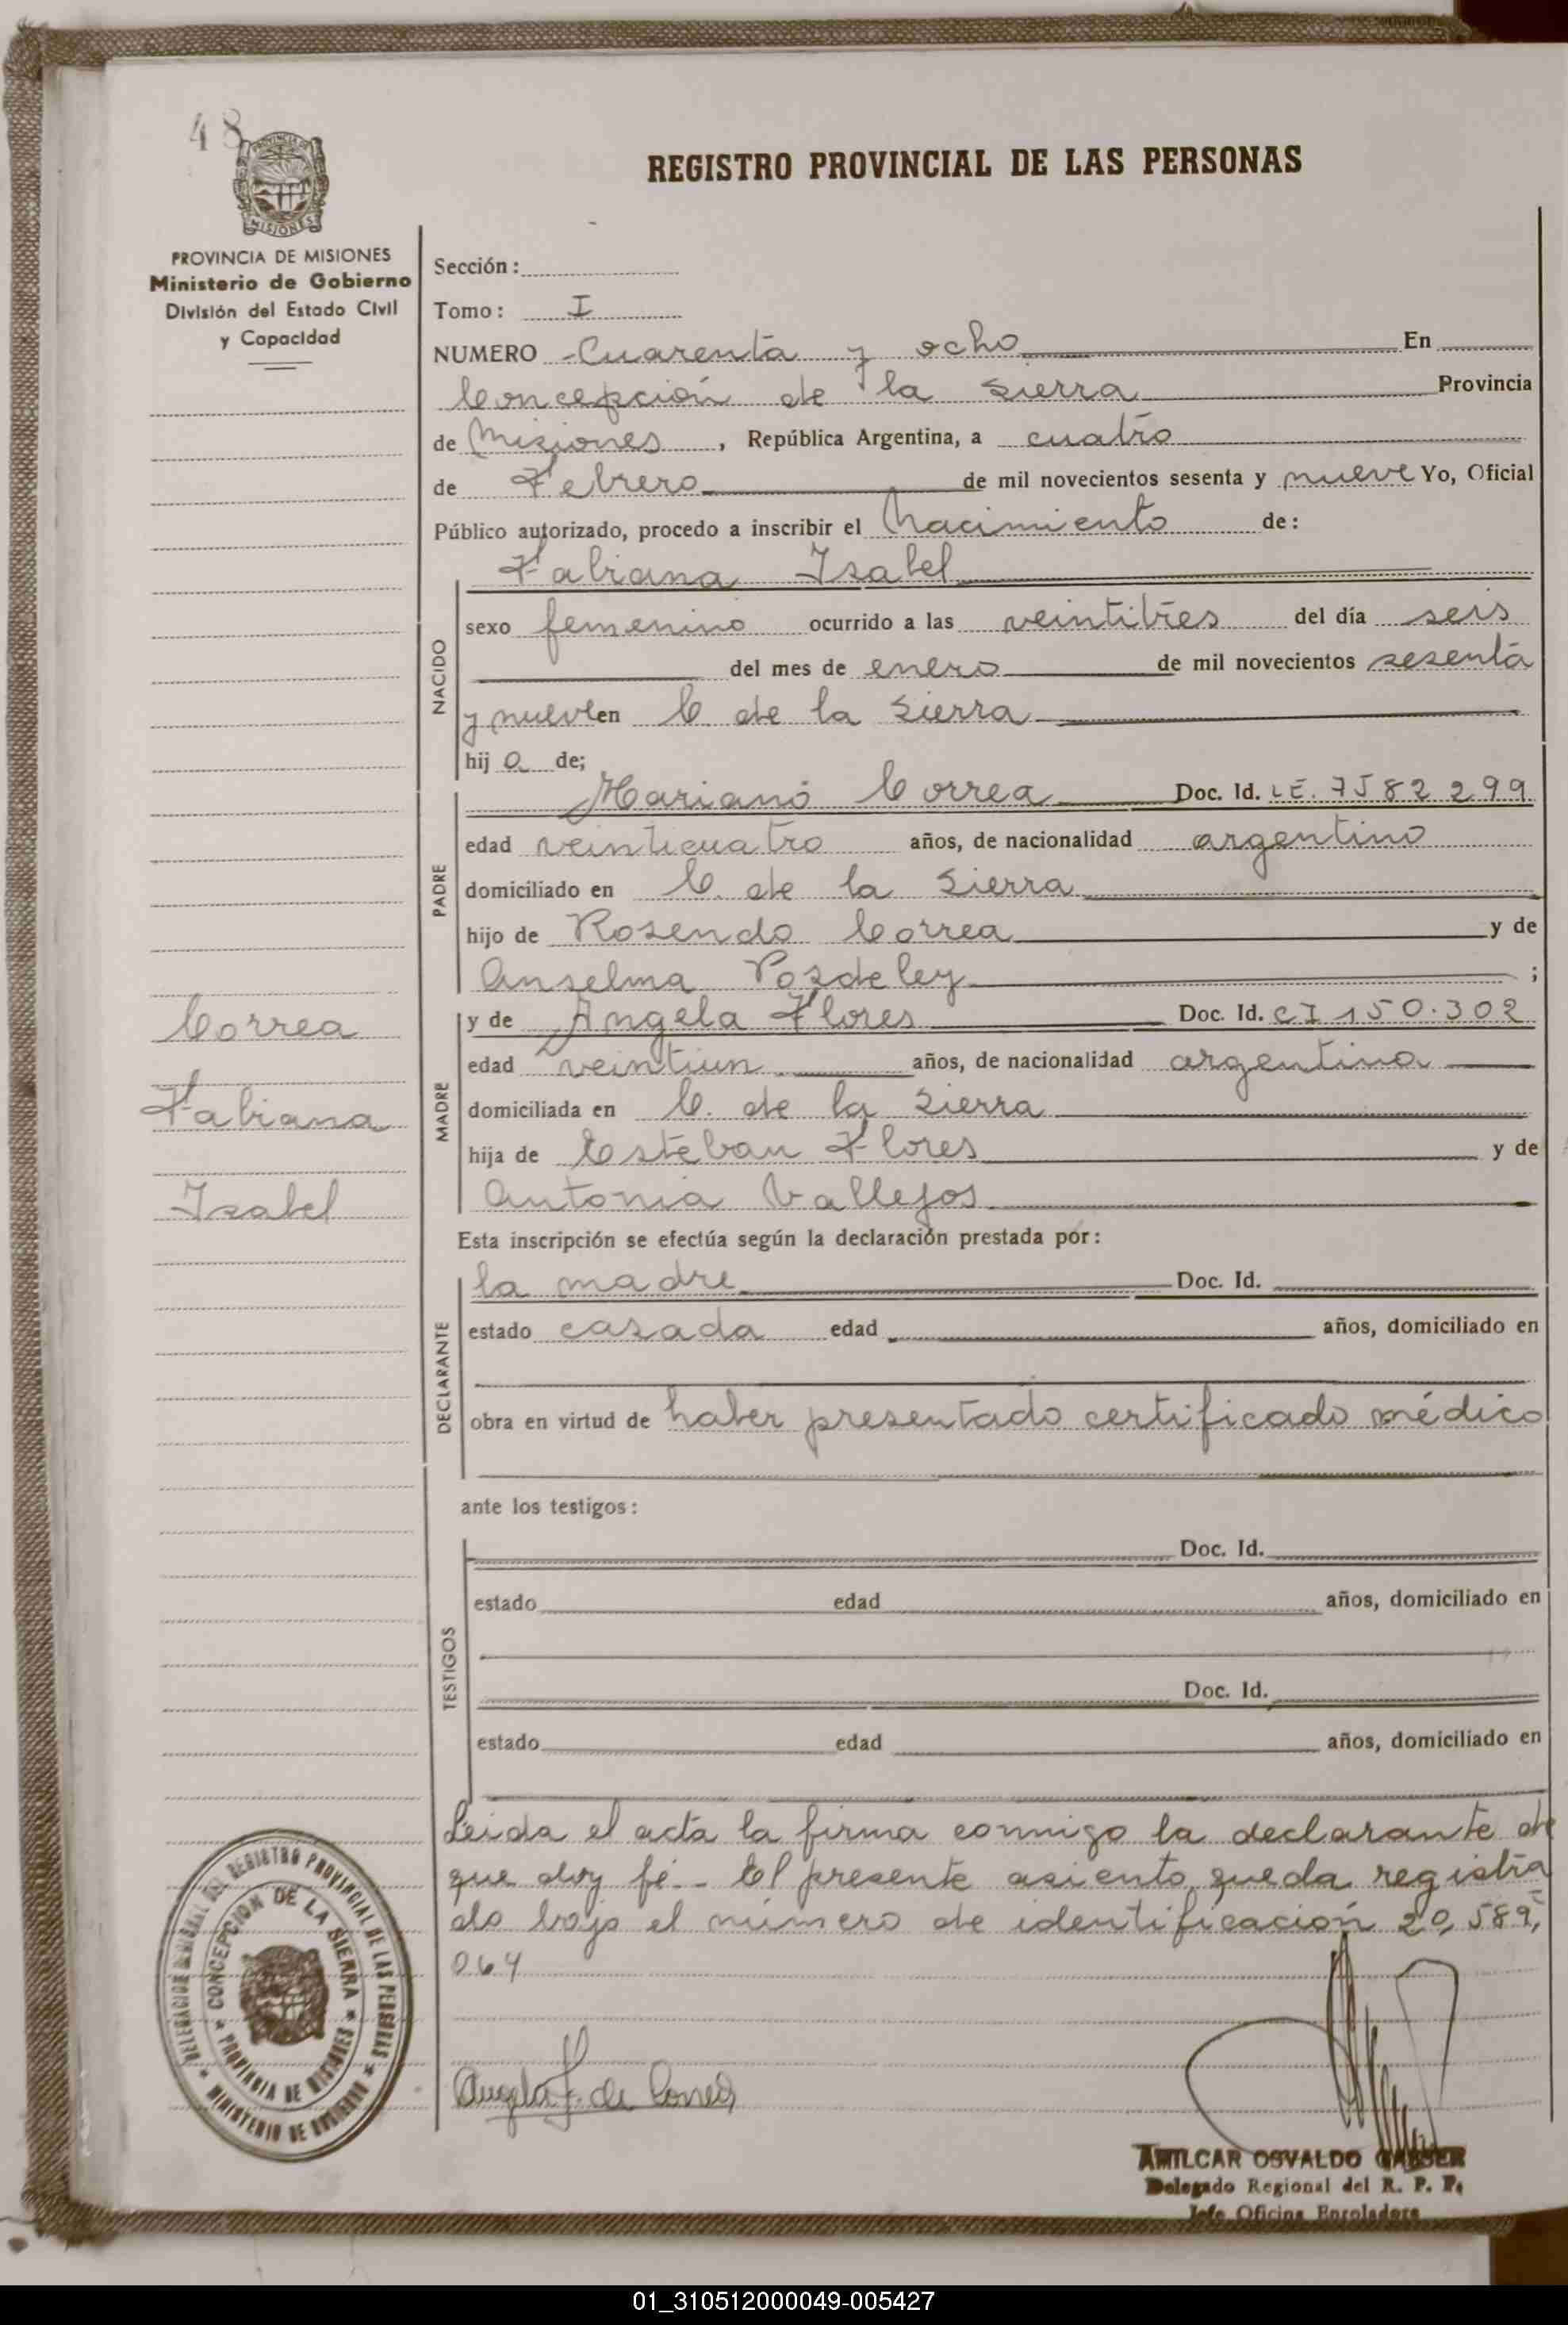 48
REGISTRO PROVINCIAL DE LAS PERSONAS
PROVINCIA DE MISIONES
Ministerio de Gobierno
División del Estado Civil
y Capacidad
Sección:
Tomo: I
NUMERO Cuarenta y ocho En
Concepción de la Sierra Provincia
de Misiones, República Argentina, a cuatro
de Febrero de mil novecientos sesenta y nueve Yo, Oficial
Público autorizado, procedo a inscribir el Nacimiento de:
Fabiana Isabel
NACIDO
sexo femenino ocurrido a las veintitrés del día seis
del mes de enero de mil novecientos sesenta
y nueve en C de la Sierra
hij a de;
PADRE
Mariano Correa Doc. Id. LE. 7582299
edad veinticuatro años, de nacionalidad argentino
domiciliado en C. de la Sierra
hijo de Rosendo Correa y de
Anselma Posdeley ;
MADRE
y de Angela Flores Doc. Id. CI 150.302
edad veintiun años, de nacionalidad argentina
domiciliada en C. de la Sierra
hija de Esteban Flores y de
Antonia Vallejos
Correa
Fabiana
Isabel
Esta inscripción se efectúa según la declaración prestada por:
DECLARANTE
la madre Doc. Id.
estado casada edad años, domiciliado en
obra en virtud de haber presentado certificado médico
ante los testigos:
TESTIGOS
Doc. Id.
estado edad años, domiciliado en
Doc. Id.
estado edad años, domiciliado en
Leida el acta la firma conmigo la declarante de
que doy fé.- El presente asiento queda registra
do bajo el número de identificación 20,589,
064
Angela F. de Correa
DEL REGISTRO PROVINCIAL DE LAS PERSONAS
CONCEPCION DE LA SIERRA
PROVINCIA DE MISIONES
MINISTERIO DE GOBIERNO
MISIONES
AMILCAR OSVALDO
Delegado Regional del R. P. P.
Jefe Oficina Enroladora
01_310512000049-005427